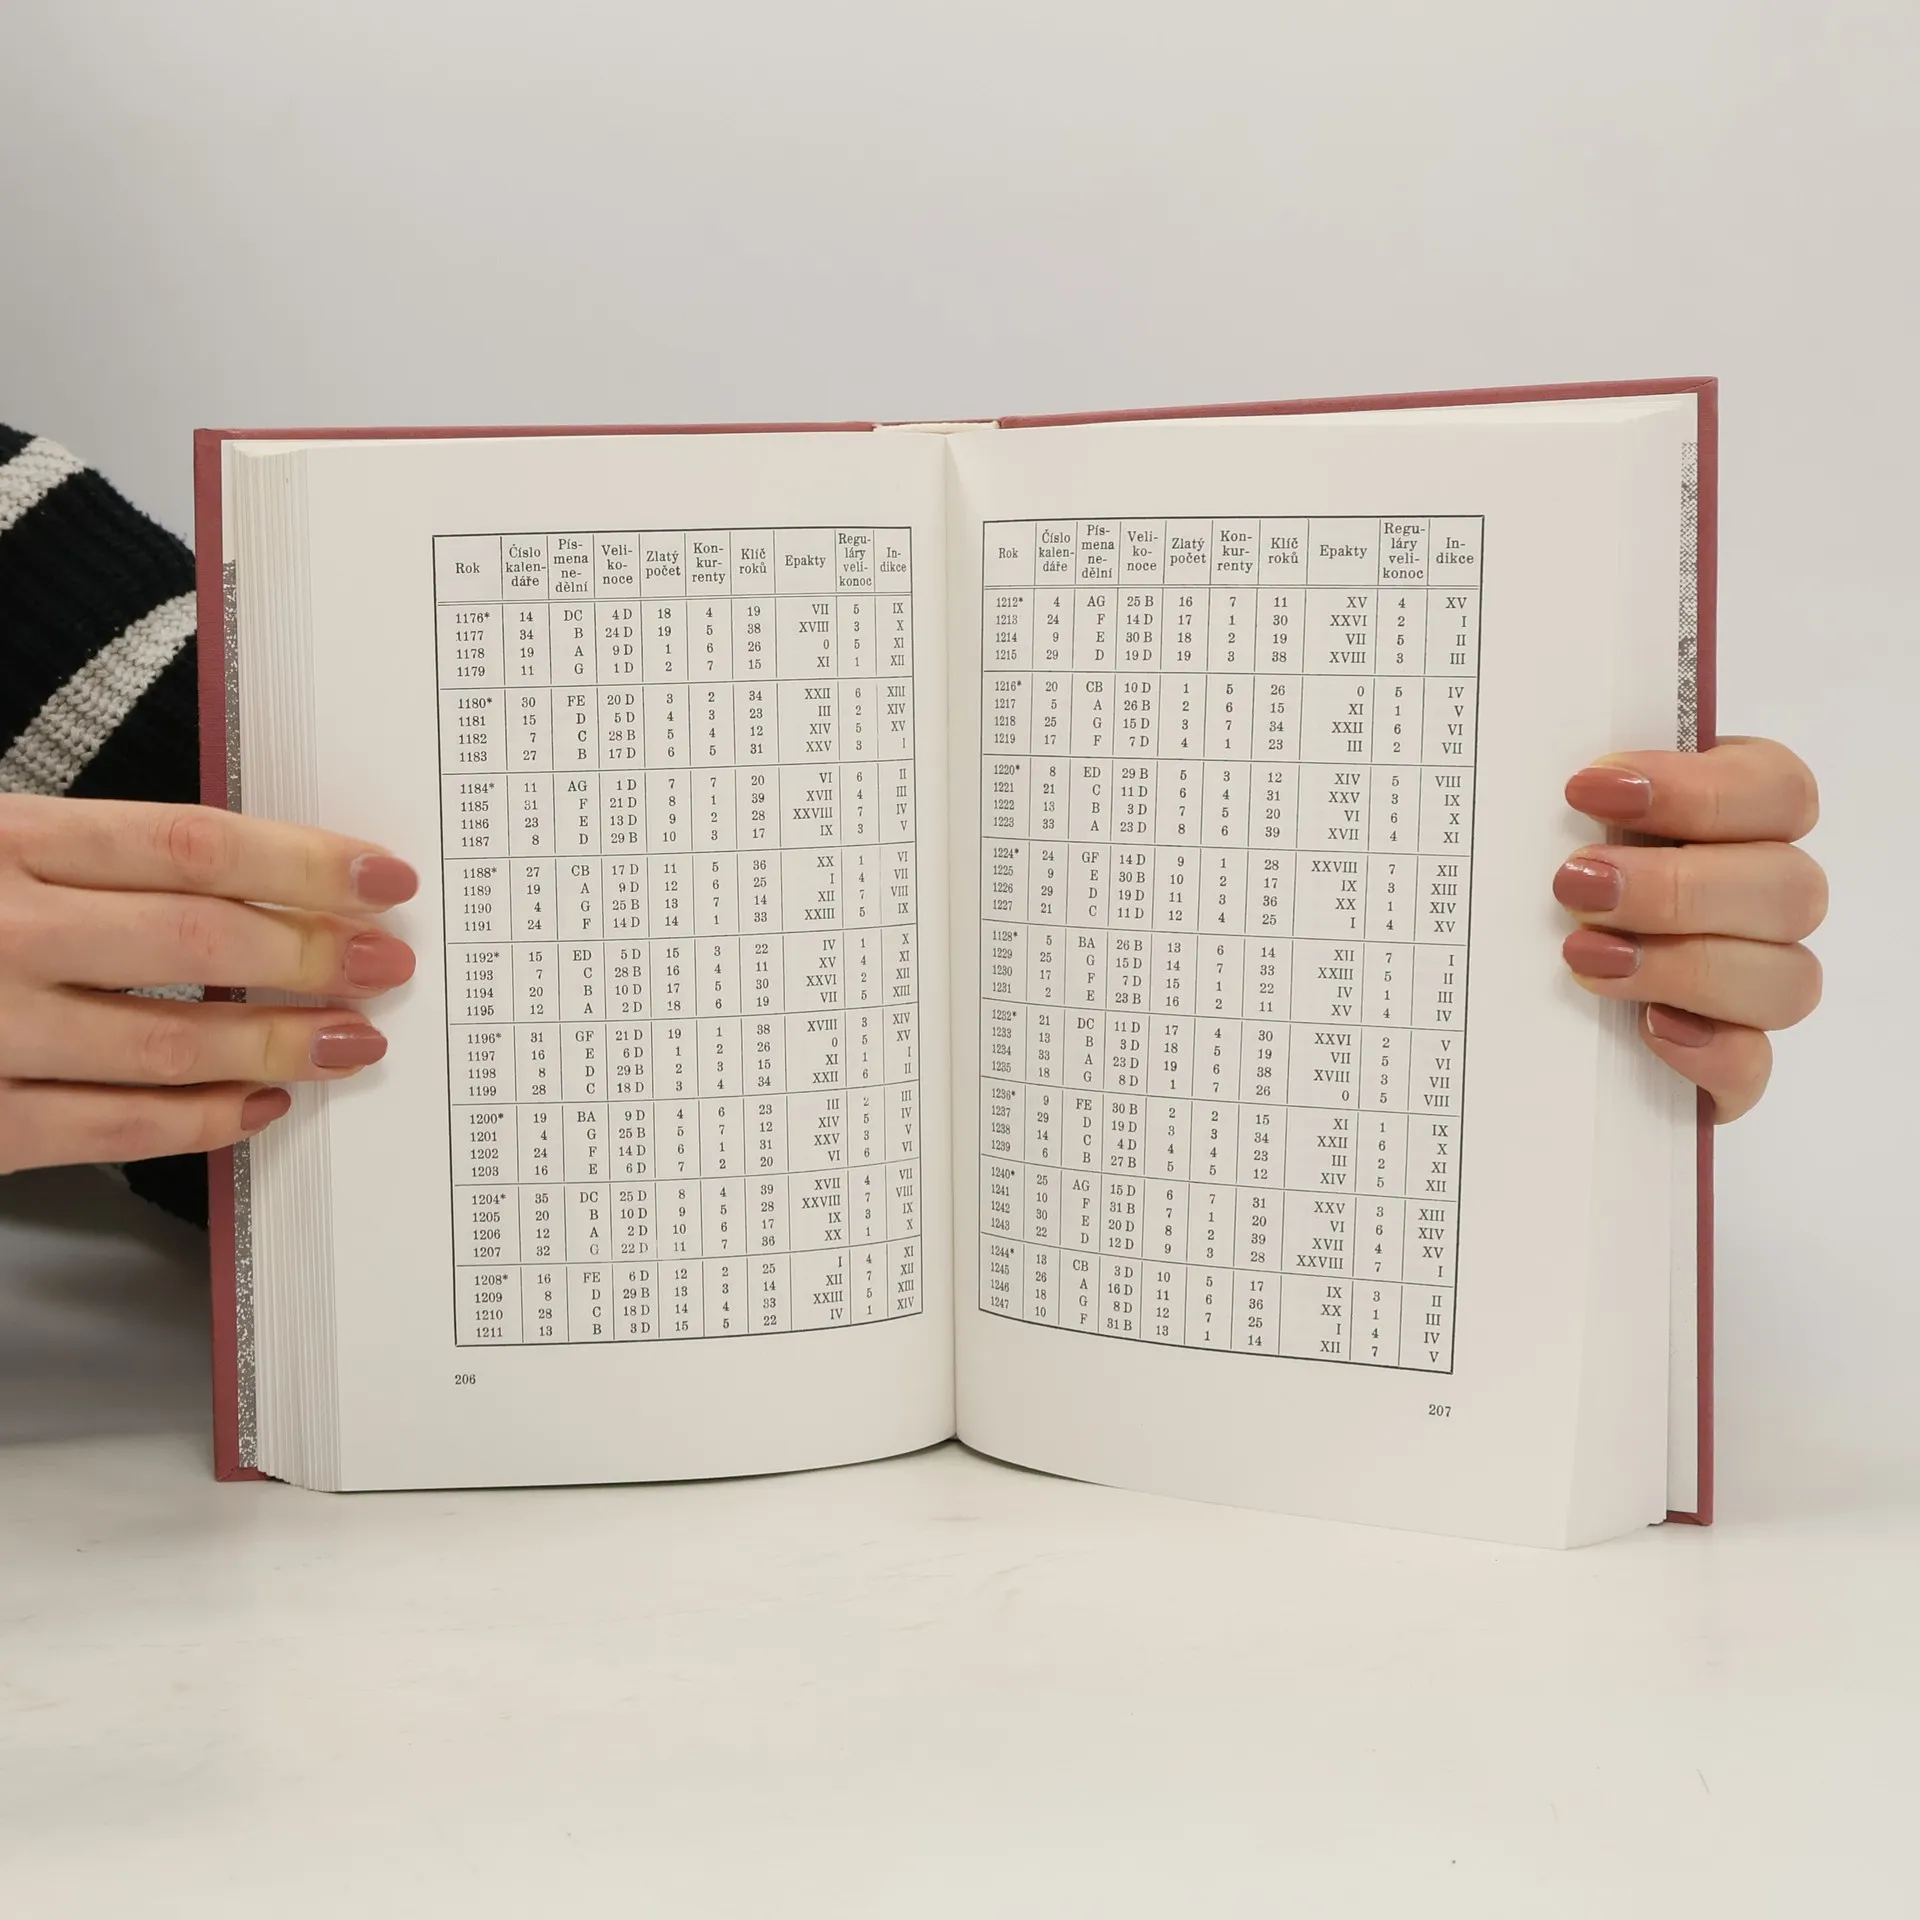 Rok Číslo kalen- dáře Pís- mena ne- dělní Veli- ko- noce Zlatý počet Kon- kur- renty Klíč roků Epakty Regu- láry veli- konoc In- dikce
1176* 14 DC 4 D 18 4 19 VII 5 IX
1177 34 B 24 D 19 5 38 XVIII 3 X
1178 19 A 9 D 1 6 26 0 5 XI
1179 11 G 1 D 2 7 15 XI 1 XII
1180* 30 FE 20 D 3 2 34 XXII 6 XIII
1181 15 D 5 D 4 3 23 III 2 XIV
1182 7 C 28 B 5 4 12 XIV 5 XV
1183 27 B 17 D 6 5 31 XXV 3 I
1184* 11 AG 1 D 7 7 20 VI 6 II
1185 31 F 21 D 8 1 39 XVII 4 III
1186 23 E 13 D 9 2 28 XXVIII 7 IV
1187 8 D 29 B 10 3 17 IX 3 V
1188* 27 CB 17 D 11 5 36 XX 1 VI
1189 19 A 9 D 12 6 25 I 4 VII
1190 4 G 25 B 13 7 14 XII 7 VIII
1191 24 F 14 D 14 1 33 XXIII 5 IX
1192* 15 ED 5 D 15 3 22 IV 1 X
1193 7 C 28 B 16 4 11 XV 4 XI
1194 20 B 10 D 17 5 30 XXVI 2 XII
1195 12 A 2 D 18 6 19 VII 5 XIII
1196* 31 GF 21 D 19 1 38 XVIII 3 XIV
1197 16 E 6 D 1 2 26 0 5 XV
1198 8 D 29 B 2 3 15 XI 1 I
1199 28 C 18 D 3 4 34 XXII 6 II
1200* 19 BA 9 D 4 6 23 III 2 III
1201 4 G 25 B 5 7 12 XIV 5 IV
1202 24 F 14 D 6 1 31 XXV 3 V
1203 16 E 6 D 7 2 20 VI 6 VI
1204* 35 DC 25 D 8 4 39 XVII 4 VII
1205 20 B 10 D 9 5 28 XXVIII 7 VIII
1206 12 A 2 D 10 6 17 IX 3 IX
1207 32 G 22 D 11 7 36 XX 1 X
1208* 16 FE 6 D 12 2 25 I 4 XI
1209 8 D 29 B 13 3 14 XII 7 XII
1210 28 C 18 D 14 4 33 XXIII 5 XIII
1211 13 B 3 D 15 5 22 IV 1 XIV
206
Rok Číslo kalen- dáře Pís- mena ne- dělní Veli- ko- noce Zlatý počet Kon- kur- renty Klíč roků Epakty Regu- láry veli- konoc In- dikce
1212* 4 AG 25 B 16 7 11 XV 4 XV
1213 24 F 14 D 17 1 30 XXVI 2 I
1214 9 E 30 B 18 2 19 VII 5 II
1215 29 D 19 D 19 3 38 XVIII 3 III
1216* 20 CB 10 D 1 5 26 0 5 IV
1217 5 A 26 B 2 6 15 XI 1 V
1218 25 G 15 D 3 7 34 XXII 6 VI
1219 17 F 7 D 4 1 23 III 2 VII
1220* 8 ED 29 B 5 3 12 XIV 5 VIII
1221 21 C 11 D 6 4 31 XXV 3 IX
1222 13 B 3 D 7 5 20 VI 6 X
1223 33 A 23 D 8 6 39 XVII 4 XI
1224* 24 GF 14 D 9 1 28 XXVIII 7 XII
1225 9 E 30 B 10 2 17 IX 3 XIII
1226 29 D 19 D 11 3 36 XX 1 XIV
1227 21 C 11 D 12 4 25 I 4 XV
1128* 5 BA 26 B 13 6 14 XII 7 I
1229 25 G 15 D 14 7 33 XXIII 5 II
1230 17 F 7 D 15 1 22 IV 1 III
1231 2 E 23 B 16 2 11 XV 4 IV
1232* 21 DC 11 D 17 4 30 XXVI 2 V
1233 13 B 3 D 18 5 19 VII 5 VI
1234 33 A 23 D 19 6 38 XVIII 3 VII
1235 18 G 8 D 1 7 26 0 5 VIII
1236* 9 FE 30 B 2 2 15 XI 1 IX
1237 29 D 19 D 3 3 34 XXII 6 X
1238 14 C 4 D 4 4 23 III 2 XI
1239 6 B 27 B 5 5 12 XIV 5 XII
1240* 25 AG 15 D 6 7 31 XXV 3 XIII
1241 10 F 31 B 7 1 20 VI 6 XIV
1242 30 E 20 D 8 2 39 XVII 4 XV
1243 22 D 12 D 9 3 28 XXVIII 7 I
1244* 13 CB 3 D 10 5 17 IX 3 II
1245 26 A 16 D 11 6 36 XX 1 III
1246 18 G 8 D 12 7 25 I 4 IV
1247 10 F 31 B 13 1 14 XII 7 V
207